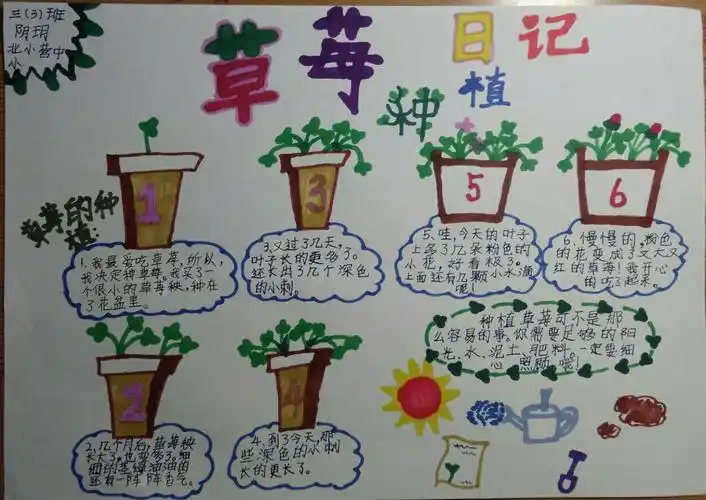 三(3)班
阴玥
北小营中
小
草莓日记
种植
草莓的种
植:
1
1.我最爱吃草莓,所以,
我决定种草莓。我买了一
个很小的草莓秧,种在
了花盆里。
3
3.又过了几天,
叶子长的更多了。
还长出了几个深色
的小刺。
5
5.哇,今天的叶子
上多了几朵粉色的
小花,好看极了。
上面还有几颗小水滴
呢!
6
6.慢慢的,粉色
的花变成了又大又
红的草莓!我开心
的吃了起来。
种植草莓可不是那
么容易的事。你需要足够的阳
光、水、泥土、肥料。一定要细
心照顾哦!
2
2.几个月后,草莓秧
长大了,也变多了。细
细的茎绿油油的
还有一阵阵香气。
4
4.到了今天,那
些深色的小刺
长的更长了。